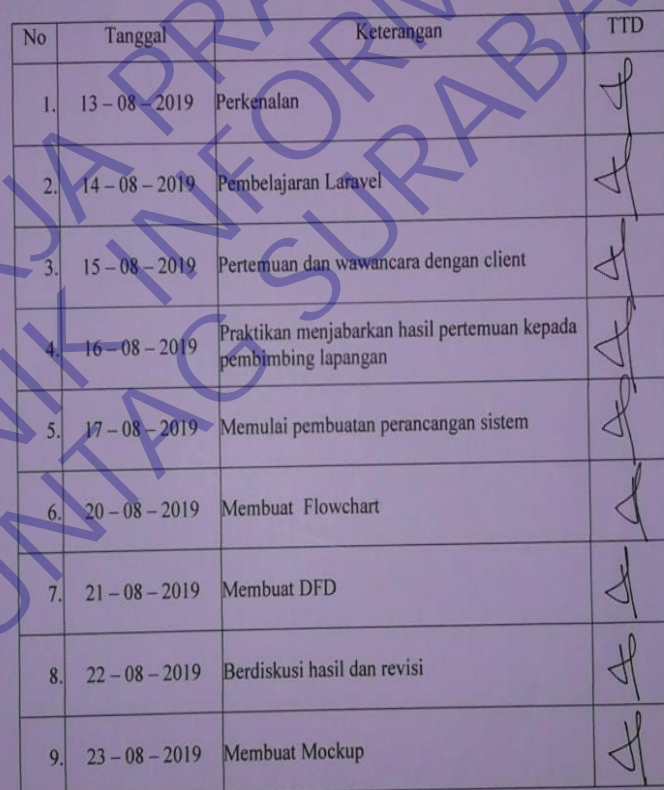 No Tanggal Keterangan TTD
1. 13 – 08 – 2019 Perkenalan
2. 14 – 08 – 2019 Pembelajaran Laravel
3. 15 – 08 – 2019 Pertemuan dan wawancara dengan client
4. 16 – 08 – 2019 Praktikan menjabarkan hasil pertemuan kepada
pembimbing lapangan
5. 17 – 08 – 2019 Memulai pembuatan perancangan sistem
6. 20 – 08 – 2019 Membuat Flowchart
7. 21 – 08 – 2019 Membuat DFD
8. 22 – 08 – 2019 Berdiskusi hasil dan revisi
9. 23 – 08 – 2019 Membuat Mockup